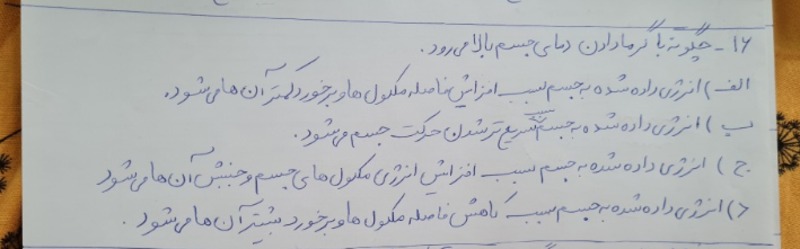 ۱۶- چگونه با گرما دادن دمای جسم بالا می رود.
الف) انرژی داده شده به جسم سبب افزایش فاصله مکلول ها و برخورد کمتر آن ها می شود.
ب) انرژی داده شده به جسم سبب سریع تر شدن حرکت جسم می شود.
ج) انرژی داده شده به جسم سبب افزایش انرژی مکلول های جسم و جنبش آن ها می شود
د) انرژی داده شده به جسم سبب کاهش فاصله مکلول ها و برخورد بیشتر آن ها می شود.